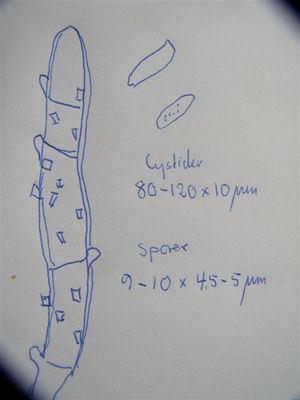 Cystider
80-120 x 10 µm
Sporer
9-10 x 4.5-5 µm